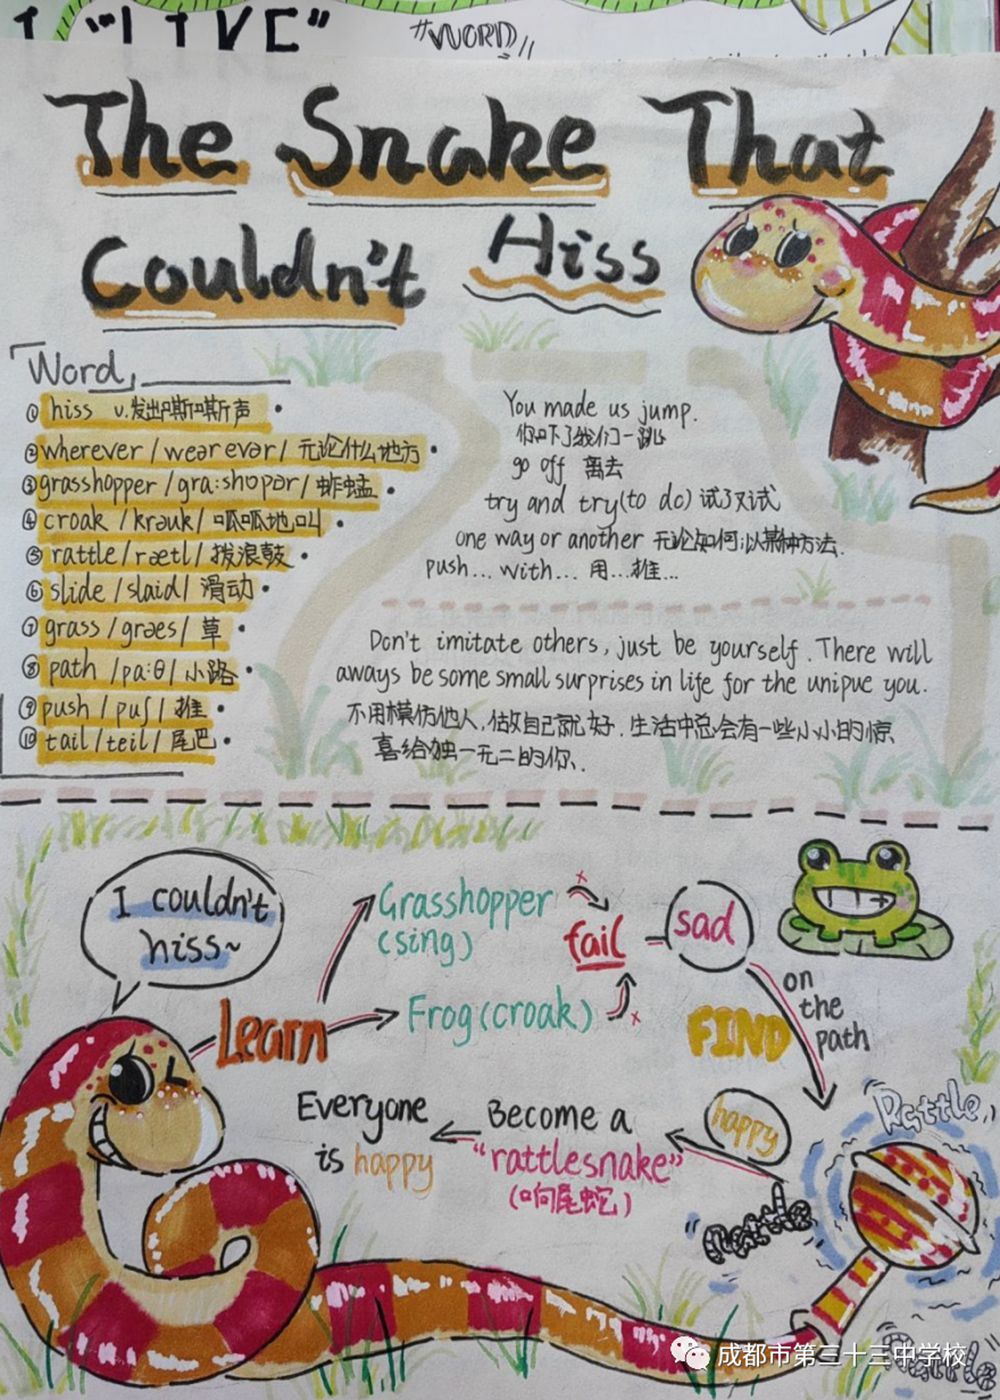 "LIKE"
"WORD"
The Snake That
Couldn't Hiss
Word
① hiss v.发出嘶嘶声
② wherever /weərevər/ 无论什么地方
③ grasshopper /gra:shopər/ 蚱蜢
④ croak /krəuk/ 呱呱地叫
⑤ rattle /rætl/ 拨浪鼓
⑥ slide /slaid/ 滑动
⑦ grass /græs/ 草
⑧ path /pa:θ/ 小路
⑨ push /puʃ/ 推
⑩ tail /teil/ 尾巴
You made us jump.
你吓了我们一跳
go off 离去
try and try(to do) 试了又试
one way or another 无论如何;以某种方法.
push... with... 用...推...
Don't imitate others, just be yourself. There will
aways be some small surprises in life for the unipue you.
不用模仿他人,做自己就好.生活中总会有一些小小的惊
喜给独一无二的你.
I couldn't
hiss~
Learn
Grasshopper
(sing)
Frog (croak)
fail
sad
FIND
on
the
path
Rattle
happy
Become a
"rattlesnake"
(响尾蛇)
Everyone
is happy
"Rattle"
Rattle
成都市第三十三中学校